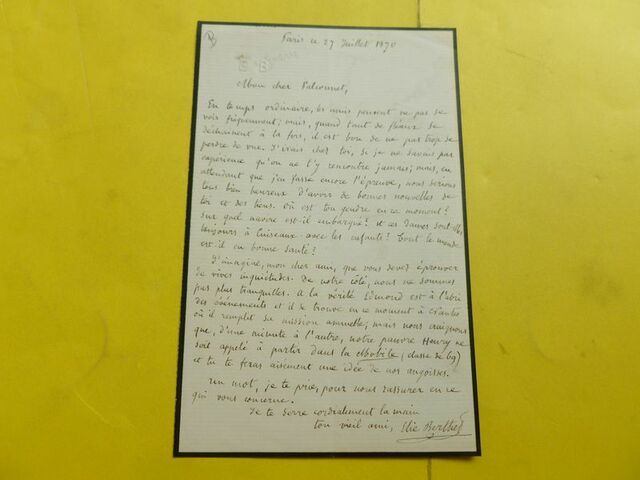 Paris ce 27 Juillet 1870
Mon cher
En temps ordinaire, les amis peuvent ne pas se
voir fréquemment; mais, quand tant de fléaux se
déchainent à la fois, il est bon de ne pas trop se
perdre de vue. J'irais chez toi, si je ne savais par
expérience qu'on ne t'y rencontre jamais; mais, en
attendant que j'en fasse encore l'épreuve, nous serions
tous bien heureux d'avoir de bonnes nouvelles de
toi et des tiens. Où est ton gendre en ce moment?
sur quel navire est-il embarqué? et ces Dames sont-elles
toujours à Cuiseaux avec les enfants? Tout le monde
est-il en bonne santé?
J'imagine, mon cher ami, que vous devez éprouver
de vives inquiétudes. De notre côté, nous ne sommes
pas plus tranquilles. A la vérité Edmond est à l'abri
des événements et il se trouve en ce moment à Nantes
où il remplit sa mission annuelle; mais nous craignons
que, d'une minute à l'autre, notre pauvre Henry ne
soit appelé à partir dans la Mobile, (classe de 69)
et tu te feras aisément une idée de nos angoisses.
Un mot, je te prie, pour nous rassurer en ce
qui vous concerne.
Je te serre cordialement la main
ton vieil ami, Elie Berthet